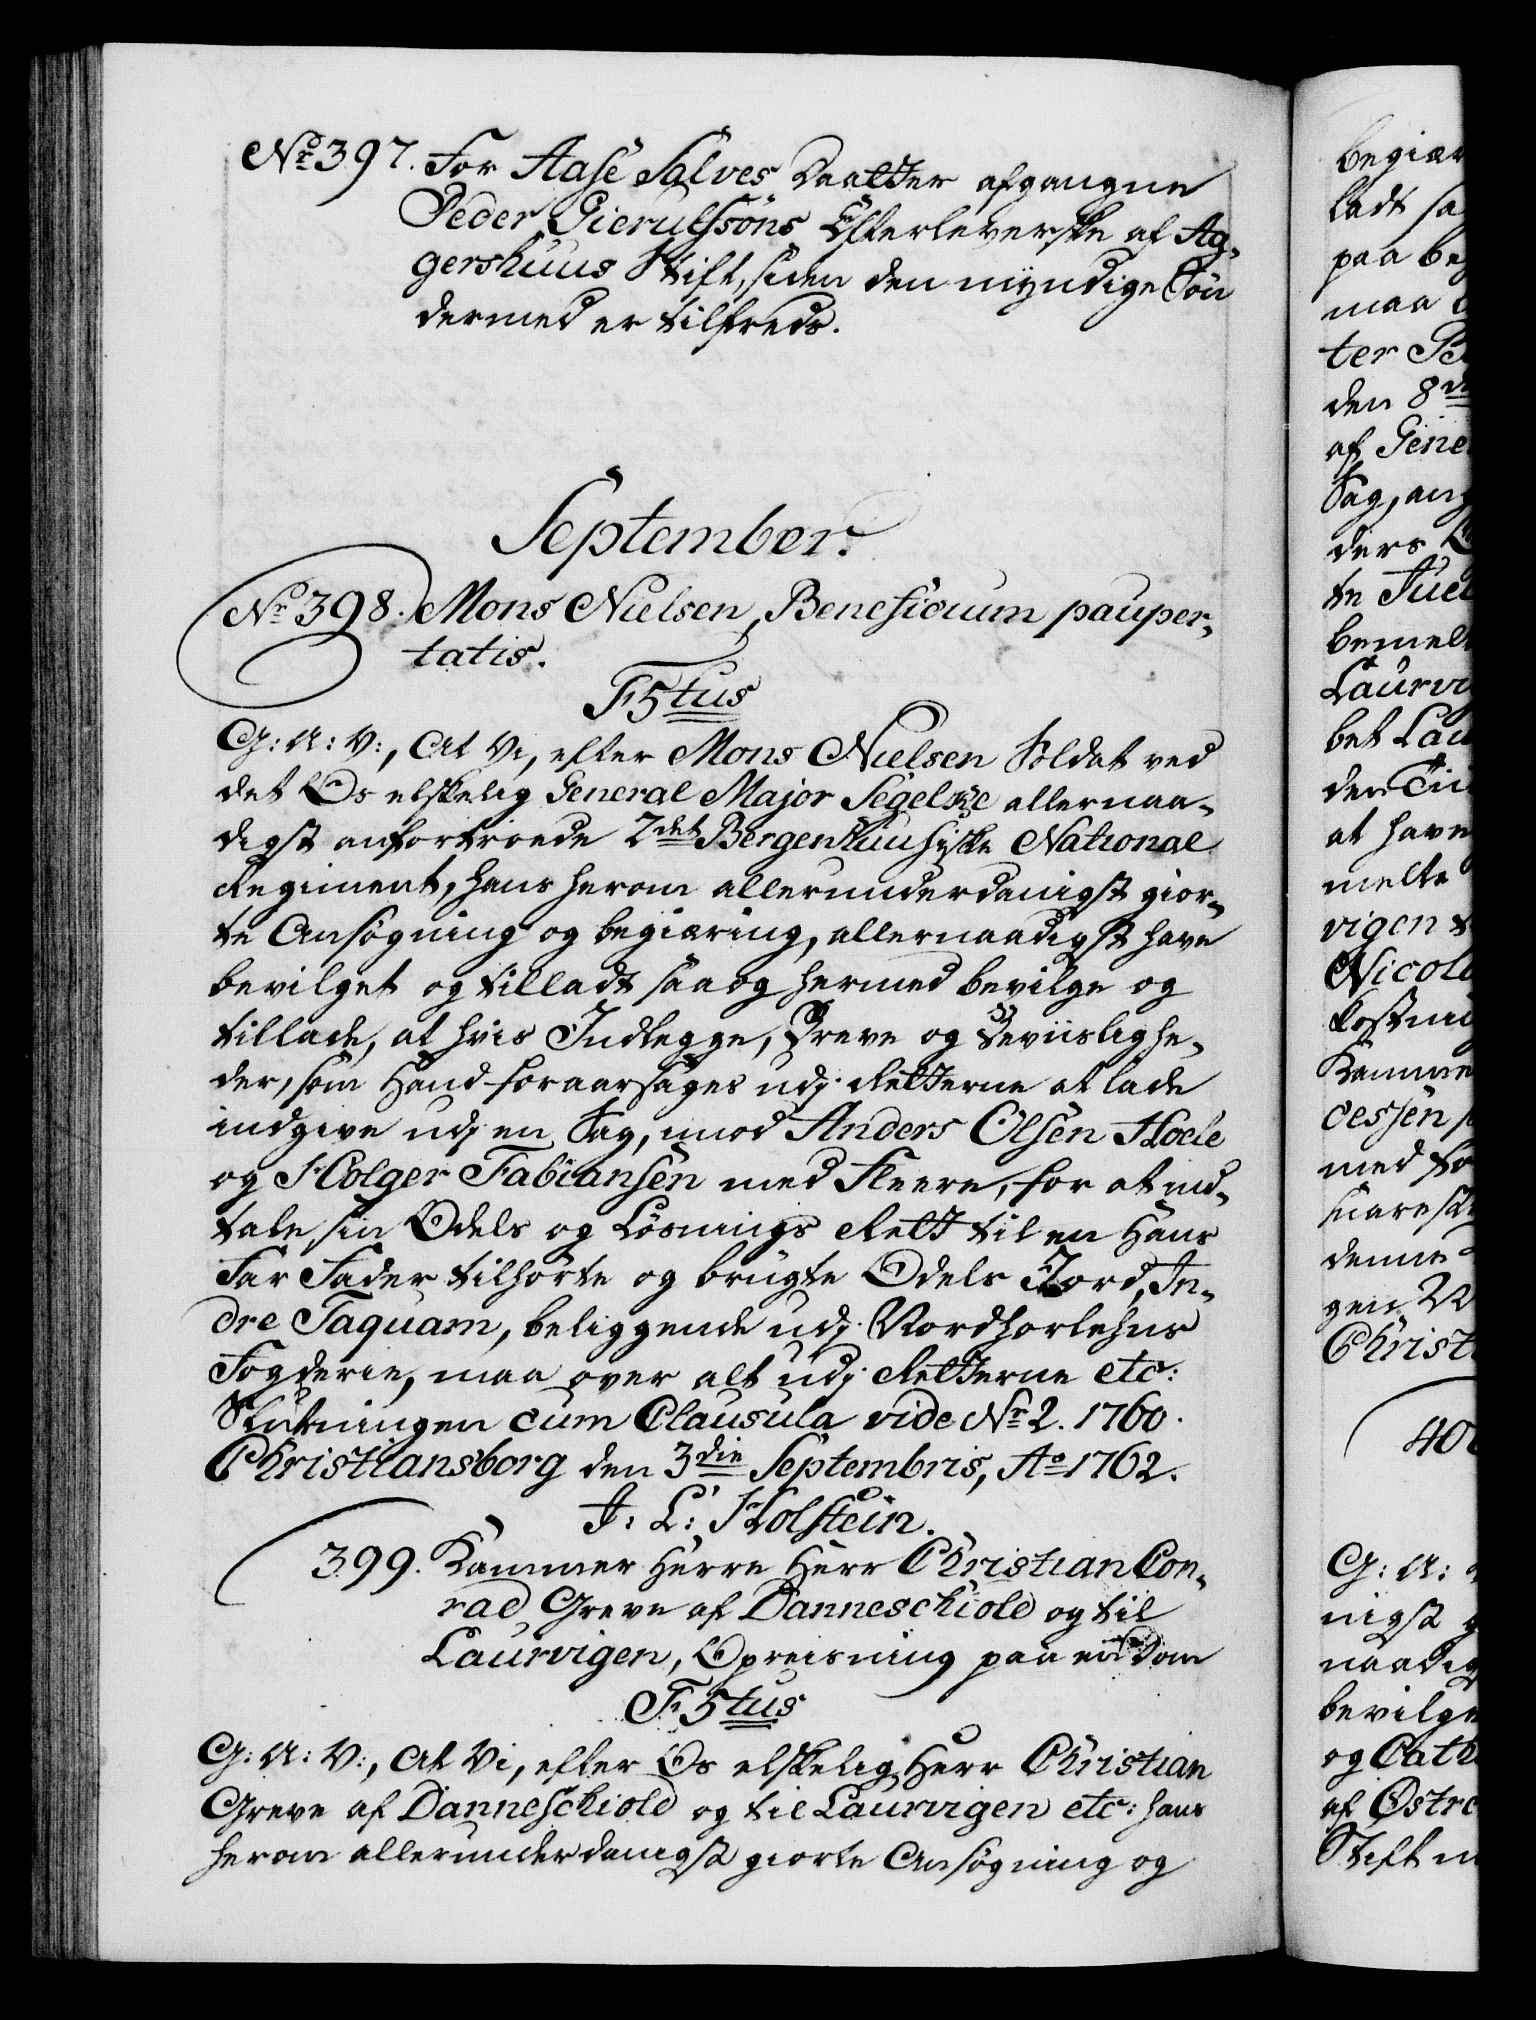 No 397. For Aase Salves Daatter afgangne
Peder Gierulssøns Efterleverske af Ag-
gershuus Stift, siden den myndige Søn
dermed er tilfreds.
September.
Nr 398. Mons Nielsen, Beneficium pauper-
tatis.
F5tus
G: A: V:, At Vi, efter Mons Nielsen Soldat ved
det Os elskelig General Major Segelke allernaa-
digst anfortroede 2det Bergenhuusiske National
Regiment, hans herom allerunderdanigst gior-
te Ansøgning og begiæring, allernaadigst have
bevilget og tilladt saa og hermed bevilge og
tillade, at hvis Indlegge, Breve og Beviislighe-
der, som Hand foraarsages udj Retterne at lade
indgive udj en Sag, imod Anders Olsen Hoele
og Holger Fabiansen med Fleere, for at ind-
tale sin Odels og Løsnings Rett til en Hans
Far Fader tilhørte og brugte Odels Jord, In-
dre Taquam, beliggende udj Nordhorlehns
Fogderie, maa over alt udj Retterne etc:
Slutningen cum Clausula vide Nr 2. 1760.
Christiansborg den 3die Septembris, Ao 1762.
J: L: Holstein.
399. Kammer Herre Herr Christian Con-
rad Greve af Danneschiold og til
Laurvigen, Opreisning paa en Dom
F5tus
G: A: V:, At Vi, efter Os elskelig Herr Christian
Greve af Danneschiold og til Laurvigen etc: hans
herom allerunderdanigst giorte Ansøgning og
begiær
ladt sa
paa be
maa
ter
den 8de
af Gene
Sag, ang
ders
te Juel
bemel
Laurvi
bet Lau
den Tii
at have
melte
vigen t
Nicola
kostni
Kamme
cessen p
med fo
snareste
denne
gen
Christi
400
G: A:
nigst g
naadig
bevilge
og Cath
af Østre
Stift m